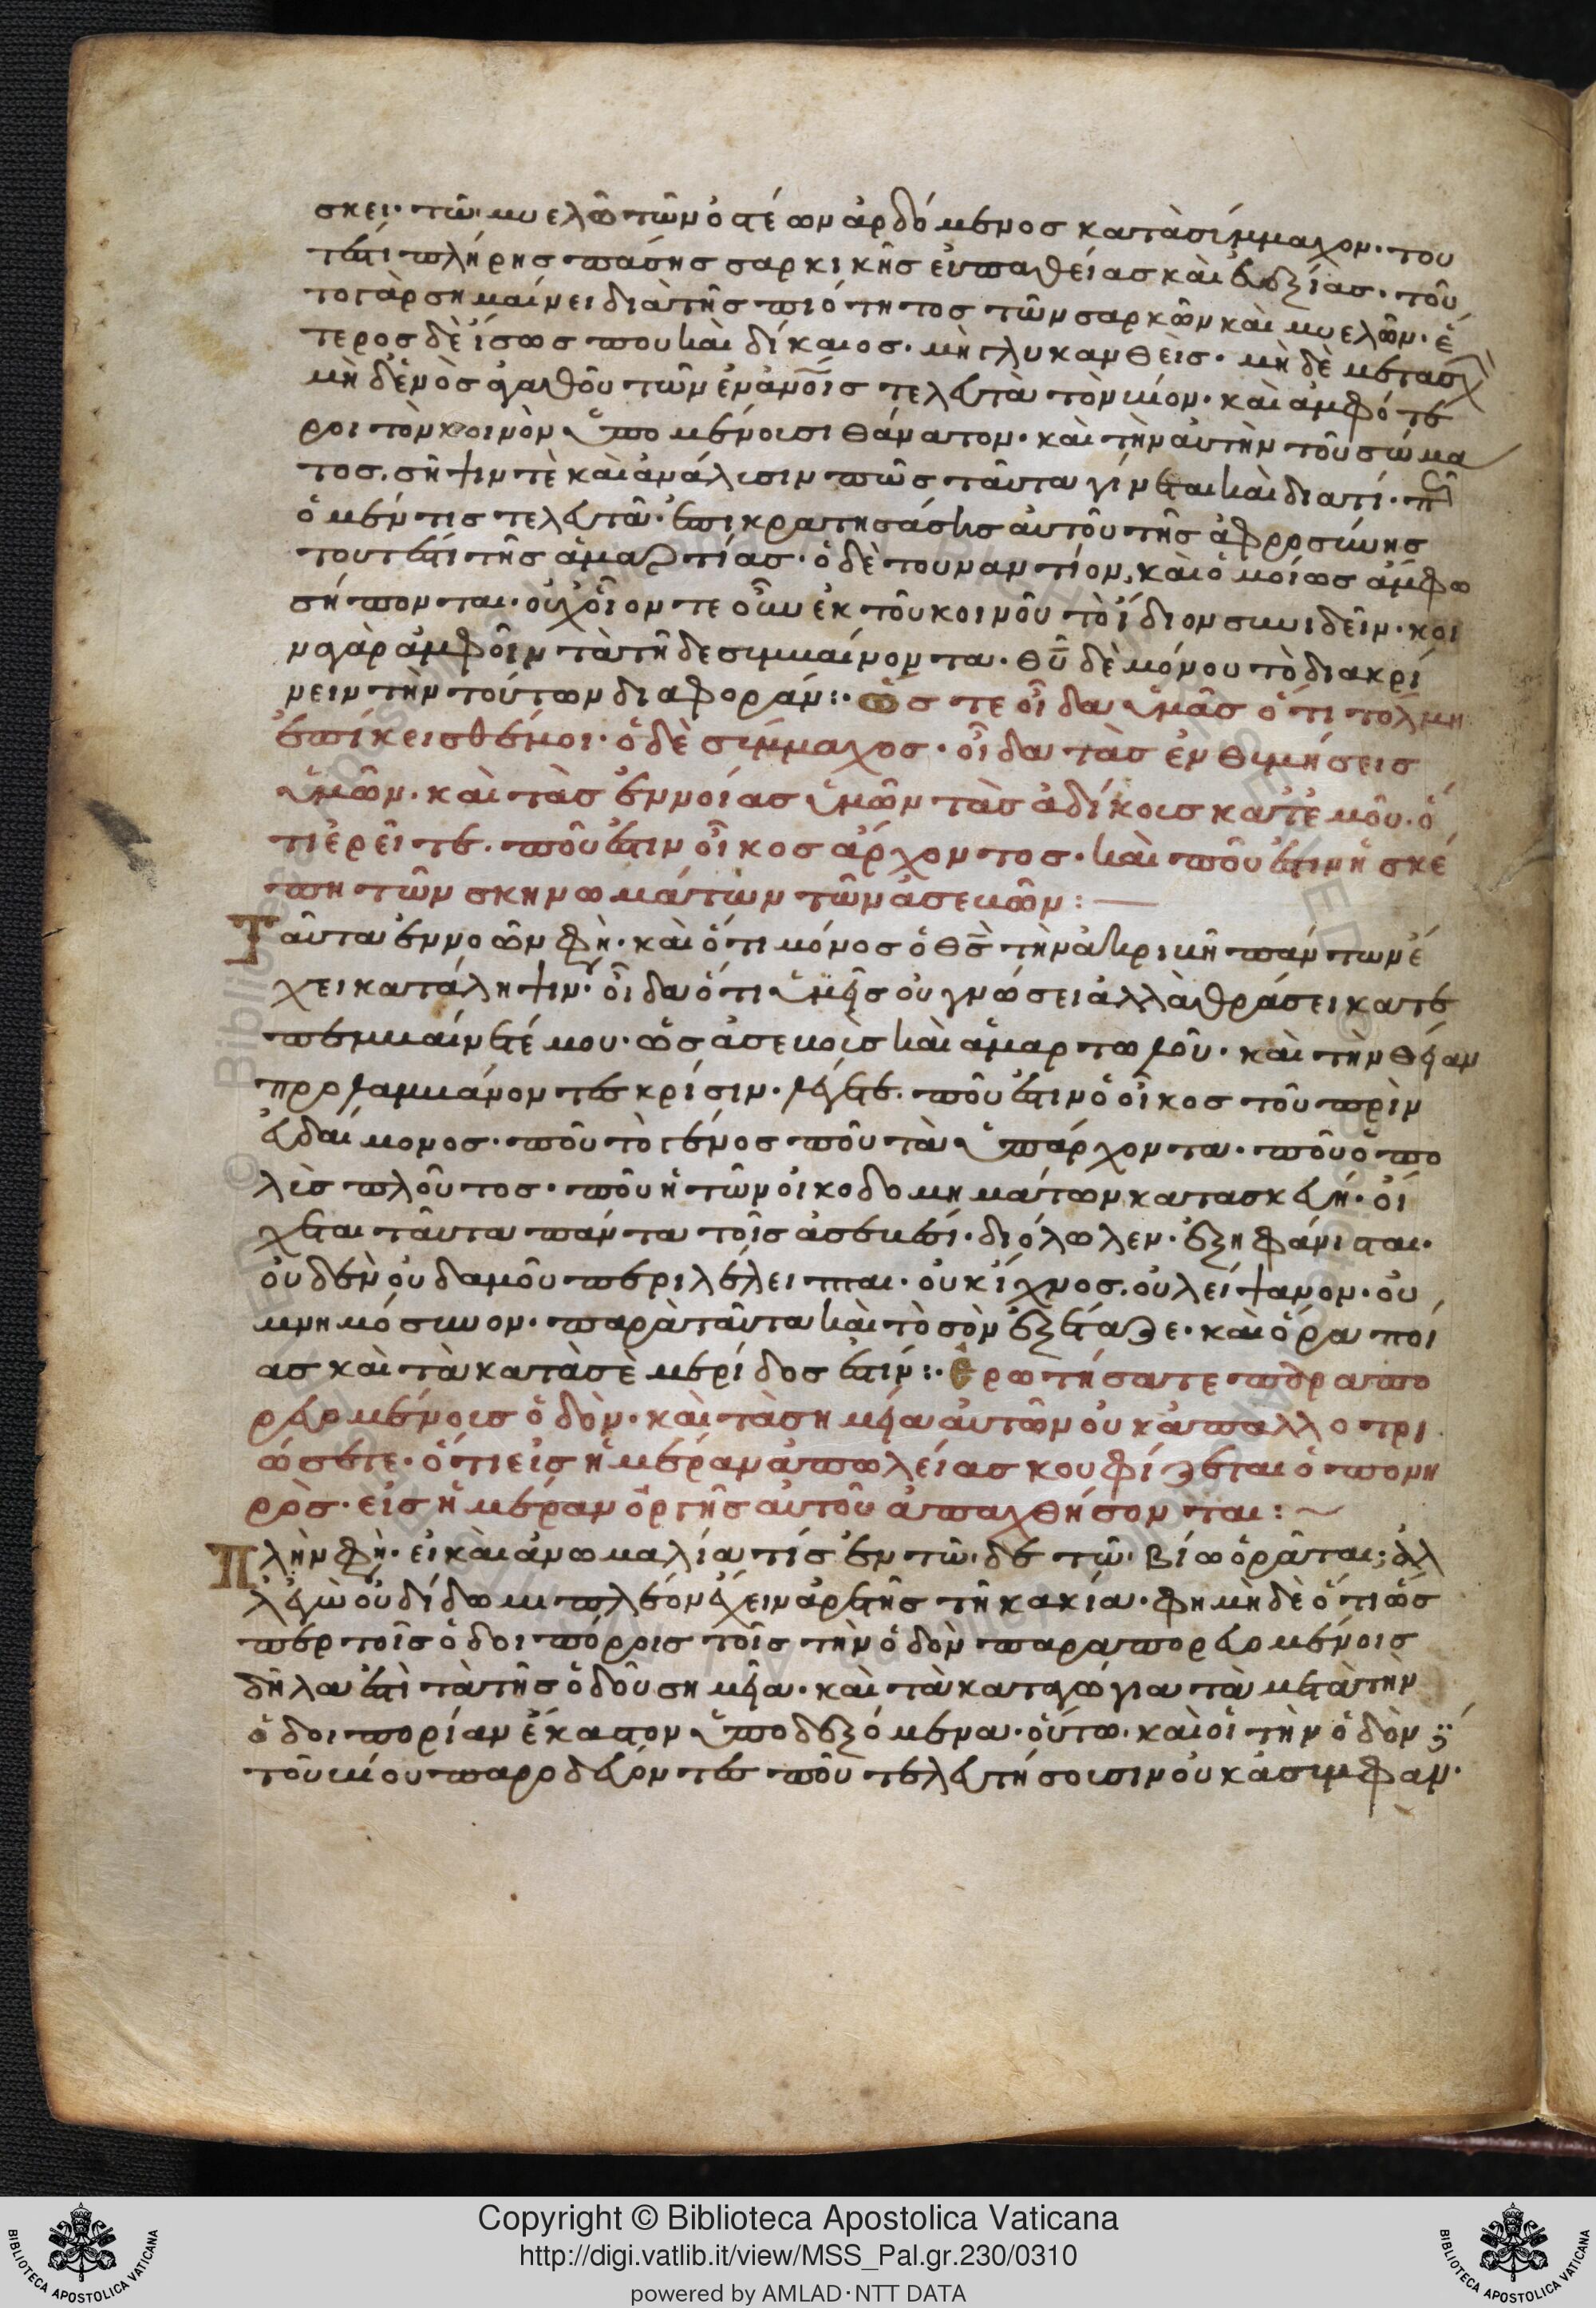 σκει· τῶ μυελῶ τῶν ὀστέων ἀρδόμενος κατὰ σύμμαχον· του
τέστι πλήρης πάσης σαρκικῆς εὐπαθείας καὶ εὐεξίας· τοῦ
το γὰρ σημαίνει διὰ τῆς πιότητος τῶν σαρκῶν καὶ μυελῶν· ἕ
τερος δὲ ἴσως που καὶ δίκαιος· μὴ γλυκανθεὶς· μὴ δὲ μετασχὼ
μὴ δενὸς ἀγαθοῦ τῶν ἐν ἀνοις τελευτὰ τὸν βίον· καὶ ἀμφότε
ροι τὸν κοινὸν ὑπομένουσι θάνατον· καὶ τὴν αὐτὴν τοῦ σώμα
τος, σῆψιν τὲ καὶ ἀνάλυσιν πῶς ταῦτα γίνεται καὶ διατί·
ὁ μέν τις τελευτᾶ· ἐπικρατησάσης αὐτοῦ τῆς ἀφροσύνης
τουτέστι τῆς ἁμαρτίας· ὁ δὲ τουναντίον, καὶ ὁμοίως ἄμφω
σήπονται· οὐχ οἷον τε οὖν ἐκ τοῦ κοινοῦ τὸ ἴδιον συνιδεῖν· κοι
ν γὰρ ἀμφοῖν τὰ τῆδε συμβαίνοντα· θυ δὲ μόνου τὸ διακρί
νειν τὴν τούτων διαφοράν:· ὥς τε οἶδα ὑμᾶς ὅτι τόλμη
ἐπίκεισθέ μοι· ὁ δὲ σύμμαχος· οἶδα τὰς ἐνθυμήσεις
ὑμῶν· καὶ τὰς ἐννοίας ὑμῶν τὰς ἀδίκους κατ' ἐμοῦ· ὅ
τι ἐρεῖτε· ποῦ ἐστιν οἶκος ἄρχοντος· καὶ ποῦ ἐστιν ἡ σκέ
πη τῶν σκηνωμάτων τῶν ἀσεβῶν:
Ταῦτα ἐννοῶν φη· καὶ ὅτι μόνος ὁ θς τὴν ἀκριβῆ πάντων ἔ
χει κατάληψιν· οἶδα ὅτι ὑμεῖς οὐ γνώσει ἀλλὰ θράσει κατε
πεμβαίνετέ μου· ὡς ἀσεβοῦς καὶ ἁμαρτωλοῦ· καὶ τὴν θείαν
προλαμβάνοντες κρίσιν· λέγετε· ποῦ ἐστιν ὁ οἶκος τοῦ πρὶν
εὐδαίμονος· ποῦ τὸ γένος ποῦ τὰ ὑπάρχοντα· ποῦ ὁ πο
λὺς πλοῦτος· ποῦ ἡ τῶν οἰκοδομημάτων κατασκευή· οἴ
χεται ταῦτα πάντα τοῖς ἀσεβέσι· διόλωλεν· ἐξηφάνισται·
οὐδὲν οὐδαμοῦ περιλέλειπται· οὐκ ἴχνος, οὐ λείψανον· οὐ
μνημόσυνον· παρὰ ταῦτα καὶ τὸ σὸν ἐξέταζε· καὶ ὅρα ποί
ας καὶ τὰ κατὰ σὲ μερίδος ἐστίν:· ἐρωτήσατε παραπο
ρευομένους ὁδὸν· καὶ τὰ σημεῖα αὐτῶν οὐκ ἀπαλλοτρι
ώσετε· ὅτι εἰς ἡμέραν ἀπωλείας κουφίζεται ὁ πονη
ρὸς· εἰς ἡμέραν ὀργῆς αὐτοῦ ἀπαχθήσονται:
Πλὴν φη· εἰ καὶ ἀνωμαλία τίς ἐν τῶ δε τῶ βίω ὁρᾶται; ἀλλ
λ ἐγὼ οὐ δίδωμι πλέον ἔχειν ἀρετῆς τῆ κακία· φημὴ δὲ ὅτι ὥς
περ τοῖς ὁδοιπόροις τοῖς τὴν ὁδὸν παραπορευομένοις
δῆλα ἐστὶ τὰ τῆς ὁδοῦ σημεῖα· καὶ τὰ καταγώγια τὰ μετὰ τὴν
ὁδοιπορίαν ἕκαστον ὑποδεξόμενα· οὕτω· καὶ οἱ τὴν ὁδὸν
τοῦ βίου παροδεύοντες ποῦ τελευτήσουσιν οὐκ ἀσυμφαν·
Copyright © Biblioteca Apostolica Vaticana
http://digi.vatlib.it/view/MSS_Pal.gr.230/0310
powered by AMLAD·NTT DATA